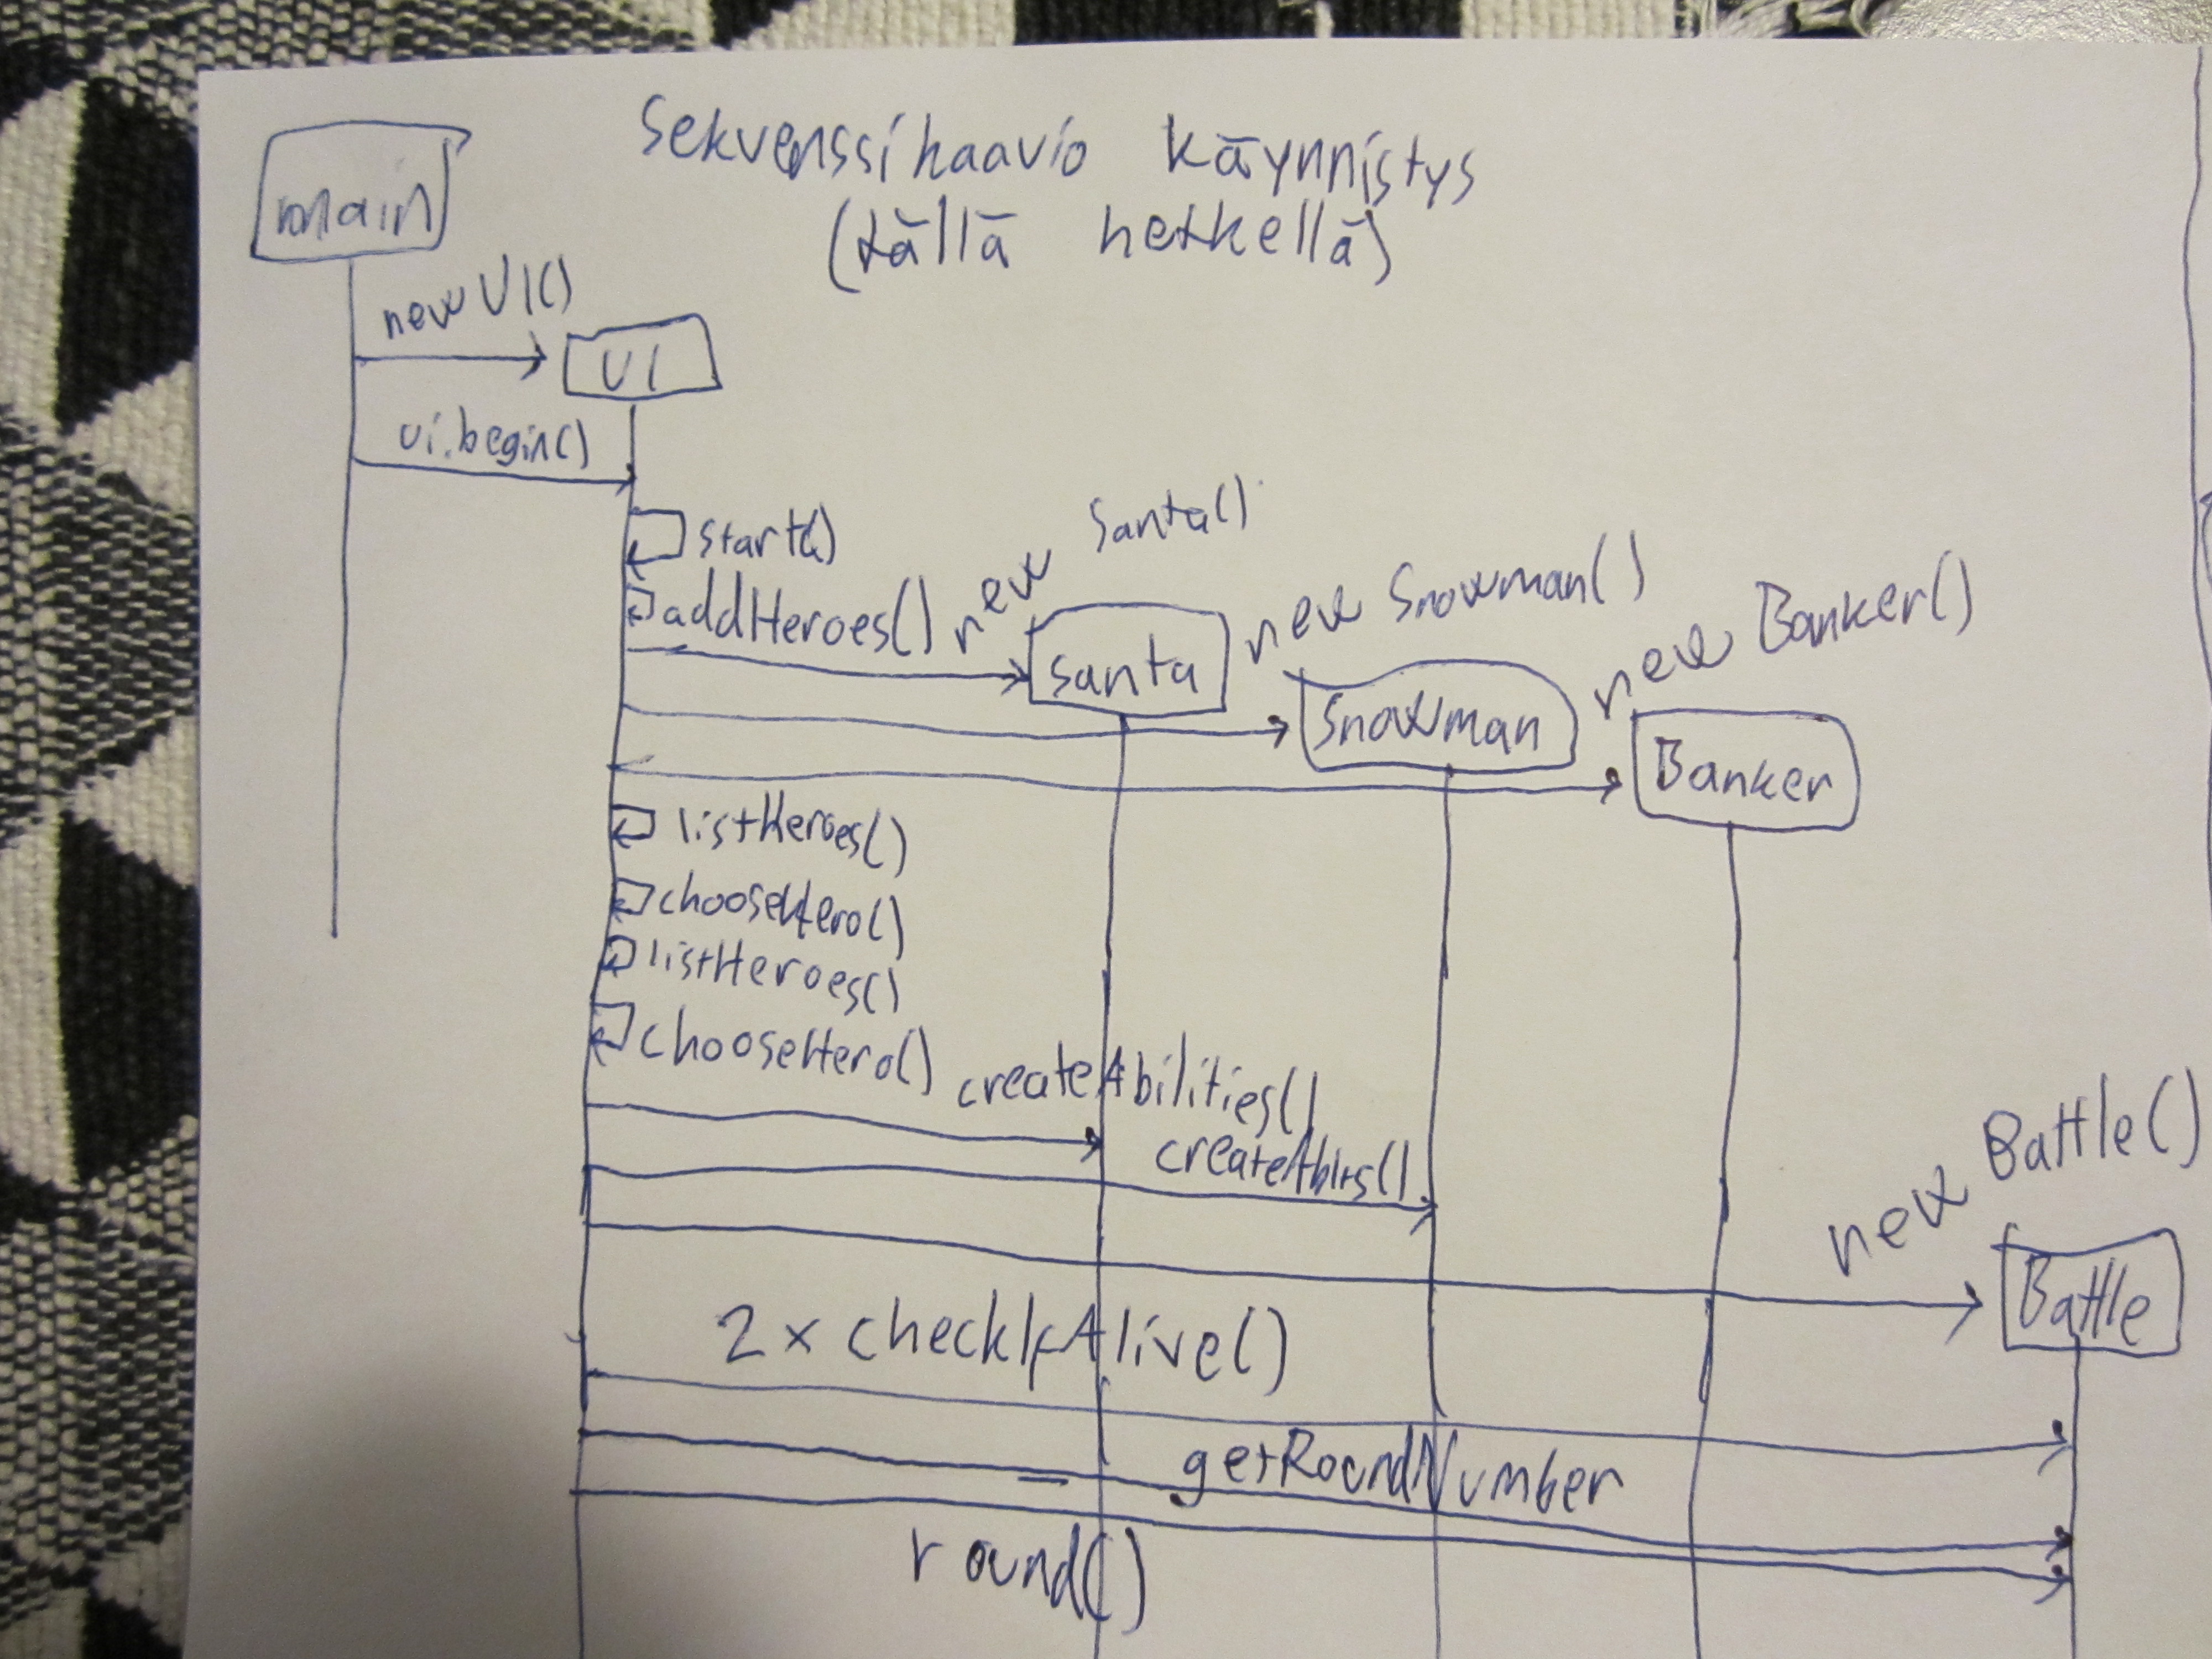 Sekvenssikaavio käynnistys
(tällä hetkellä)
main
new UI()
UI
ui.begin()
start()
new Santa()
addHeroes()
santa
new Snowman()
Snowman
new Banker()
Banker
listHeroes()
chooseHero()
listHeroes()
chooseHero()
createAbilities()
createAbits()
new Battle()
Battle
2 x checkIfAlive()
getRoundNumber
round()